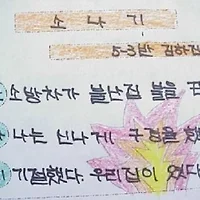 소 나 기
5-3반
소방차가 불난집 불을
나는 신나게 구경을 했
기 기절했다. 우리집이 었다